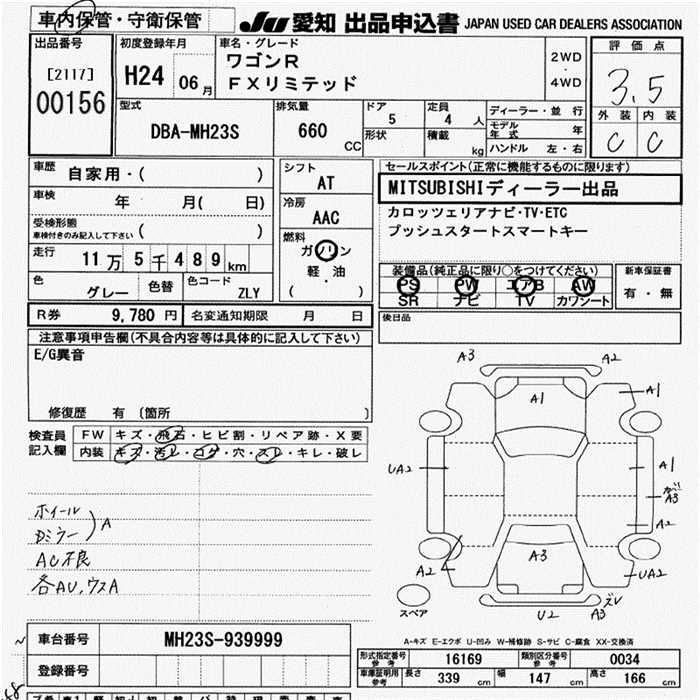 車内保管・守衛保管
JU 愛知 出品申込書 JAPAN USED CAR DEALERS ASSOCIATION
出品番号
[2117]
00156
初度登録年月
H24 06月
車名・グレード
ワゴンR
FXリミテッド
2WD
・
4WD
評価点
3.5
外装 内装
C C
型式
DBA-MH23S
排気量
660 CC
ドア
5
形状
定員
4 人
積載
kg
ディーラー・並 行
モデル年式 年
ハンドル 左・右
車歴 自家用・( )
車検 年 月( 日)
受検形態
車検付きのみ記入して下さい ( )
走行 11万5千489km
色 グレー 色替 色コード ZLY
シフト
AT
冷房
AAC
燃料
ガソリン
軽・油
( )
セールスポイント(正常に機能するものに限ります)
MITSUBISHIディーラー出品
カロッツェリアナビ・TV・ETC
プッシュスタートスマートキー
装備品(純正品に限り○をつけてください)
PS PW エアB AW
SR ナビ TV カワシート
新車保証書
有・無
R券 9,780 円 名変通知期限 月 日
後日品
注意事項申告欄(不具合内容等は具体的に記入して下さい)
E/G異音
修復歴 有 (箇所 )
検査員記入欄
FW キズ・飛石・ヒビ割・リペア跡・X要
内装 キズ・汚レ・コゲ・穴・スレ・キレ・破レ
ホイール
Dミラー ) A
AC不良
各AU,ウスA
A3 A2
A1 A1
UA2 A1
A3
A2
A2 A3 UA2
スペア U2 A3
A-キズ E-エクボ U-凹み W-補修跡 S-サビ C-腐食 XX-交換済
車台番号 MH23S-939999
登録番号
形式指定番号 参考 16169 類別区分番号 参考 0034
車庫証明用 参考 長さ 339 cm 幅 147 cm 高さ 166 cm